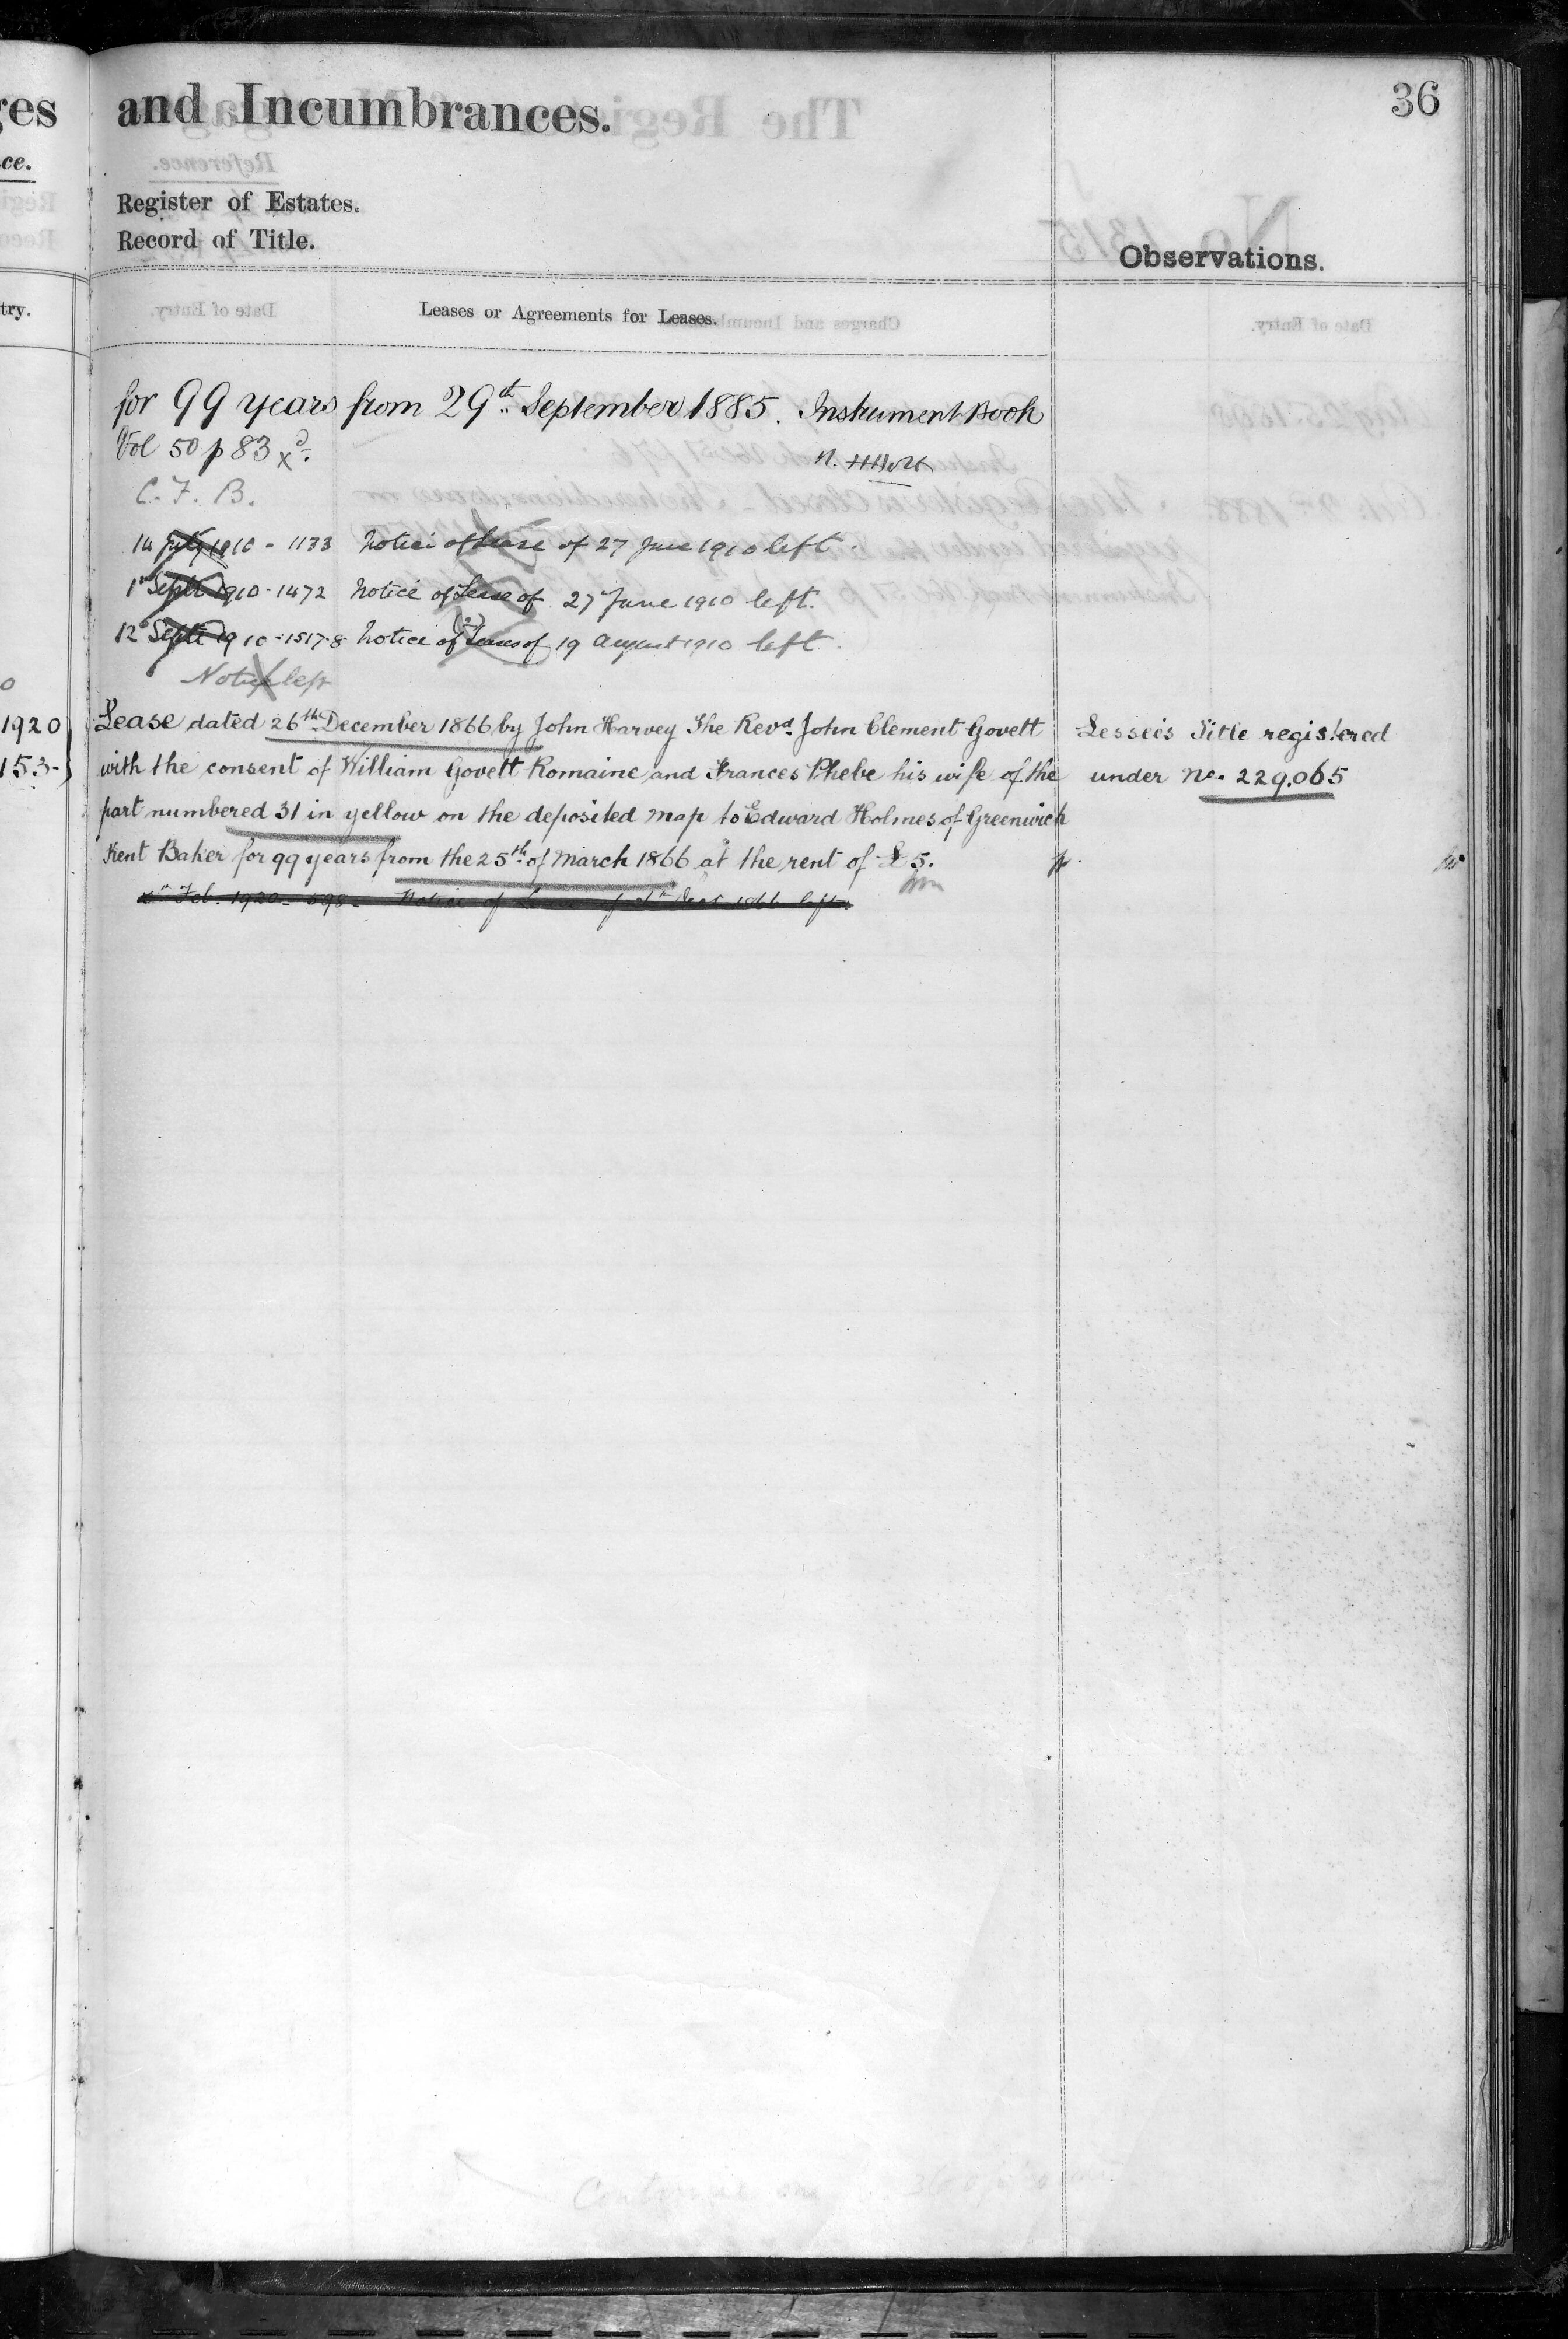 36
ges and Incumbrances.
ce.
Register of Estates.
Record of Title.
Observations.
try.
Leases or Agreements for Leases.
for 99 years from 29th September 1885. Instrument Book
Vol 50 p 83 xd.
C. F. B.
14 July 1910 - 1133 Notice of Lease of 27 June 1910 left.
1st Septr 1910 - 1472 Notice of Lease of 27 June 1910 left.
12 Septr 1910 - 1517-8 Notice of (2) Leases of 19 August 1910 left.
Notice left
0
1920
153-
Lease dated 26th December 1866 by John Harvey The Revd. John Clement Govett
with the consent of William Govett Romaine and Frances Phebe his wife of the
part numbered 31 in yellow on the deposited map to Edward Holmes of Greenwich
Kent Baker for 99 years from the 25th of March 1866 at the rent of £5.
Feb. 1920 - 598 - Notice of Lease of 26th Decr 1866 left.
Lessee's Title registered
under No. 229,065